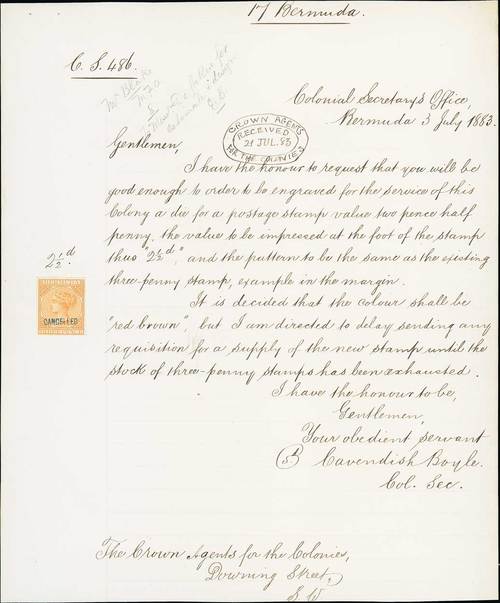 17 Bermuda.
C. S. 486.
Mr Blake
Colonial Secretary's Office,
Bermuda 3 July 1883.
CROWN AGENTS
RECEIVED
21 JUL. 83
FOR THE COLONIES
Gentlemen,
I have the honour to request that you will be
good enough to order to be engraved for the service of this
Colony a die for a postage stamp value two pence half
penny, the value to be impressed at the foot of the stamp
thus "2½d", and the pattern to be the same as the existing
three-penny stamp, example in the margin.
2½d
CANCELLED
It is decided that the colour shall be
"red brown", but I am directed to delay sending any
requisition for a supply of the new stamp until the
stock of three-penny stamps has been exhausted.
I have the honour to be,
Gentlemen,
Your obedient servant
Cavendish Boyle.
Col. Sec.
The Crown Agents for the Colonies,
Downing Street,
S. W